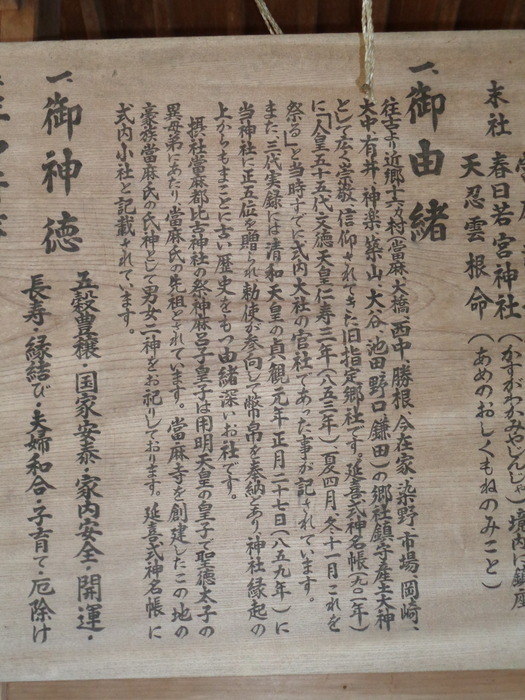 末社 春日若宮神社(かすがわかみやじんじゃ)境内に鎮座
天忍雲根命(あめのおしくもねのみこと)
一、御由緒
往古より近郷十六ヵ村(當麻、大橋、西中、勝根、今在家、染野、市場、岡崎、
大中、有井、神楽、築山、大谷、池田、野口、鎌田)の郷社鎮守産土大神
として広く崇敬、信仰されてきた旧指定郷社です。延喜式神名帳(九〇一年)
に「人皇五十五代文徳天皇仁寿三年(八五三年)夏四月、冬十一月これを
祭る」と当時すでに式内大社の官社であった事が記されています。
また、三代実録には清和天皇の貞観元年正月二十七日(八五九年)に
当神社に正五位を贈られ勅使が参向して幣帛を奉納とあり神社縁起の
上からもまことに古い歴史をもつ由緒深いお社です。
摂社當麻都比古神社の祭神麻呂子皇子は用明天皇の皇子で聖徳太子の
異母弟にあたり、當麻氏の先祖とされています。當麻寺を創建したこの地の
豪族當麻氏の氏神として男女二神をお祀りしております。延喜式神名帳に
式内小社と記載されています。
一、御神徳
五穀豊穣・国家安泰・家内安全・開運・
長寿・縁結び・夫婦和合・子育て・厄除け